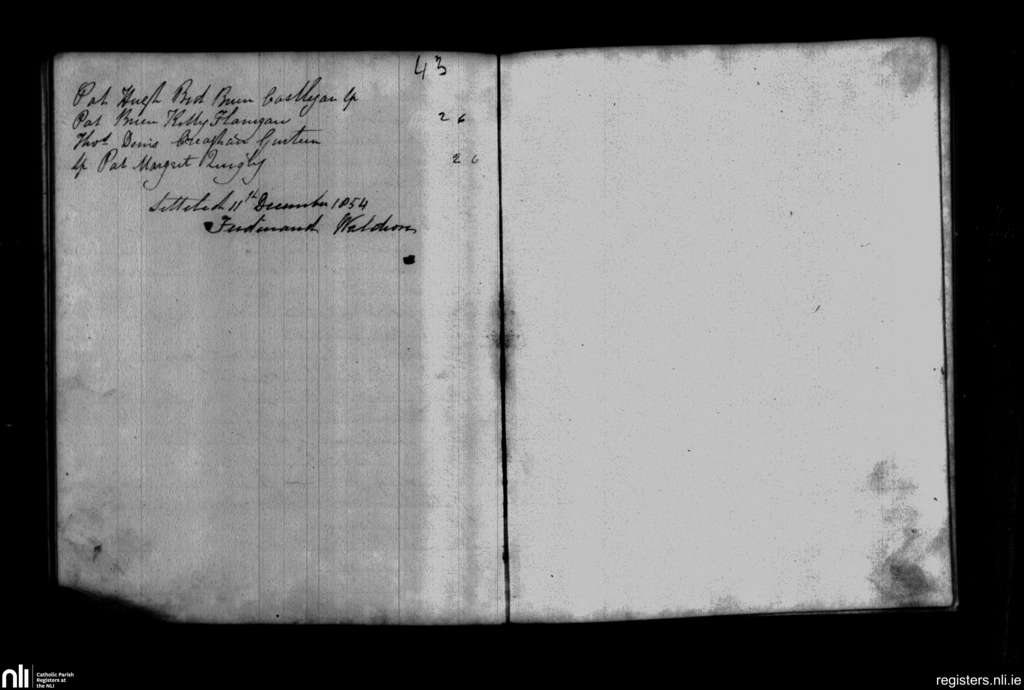 43
Pat Hugh Brd Brien Castlegar Sp
Pat Brien Kitty Flanigan 2 6
Thos Denis Creaghan Gurteen
Sp Pat Margret Quigly 2 6
Setteled 11th December 1854
Ferdinand Waldron
nli Catholic Parish Registers at the NLI
registers.nli.ie